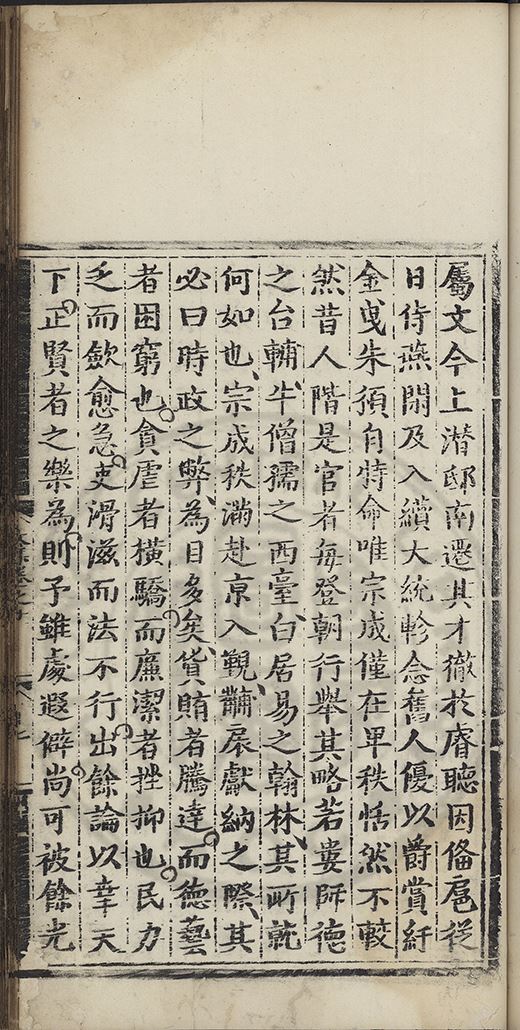 屬文今上潛邸南遷其才徹於睿聽因俻扈從
日侍燕閑及入纘大統軫念舊人優以爵賞紆
金曵朱須自特命唯宗成僅在畢秩恬然不較
然昔人階是官者每登朝行舉其略若婁師徳
之台輔牛僧孺之西臺白居易之翰林其所就
何如也宗成秩滿赴京入覲黼扆獻納之際其
必曰時政之弊為目多矣貨賄者騰達而徳藝
者困窮也貪虐者橫驕而廉潔者挫抑也民力
乏而歛愈急吏滑滋而法不行出餘論以幸天
下正賢者之樂為則予雖處遐僻尚可被餘光